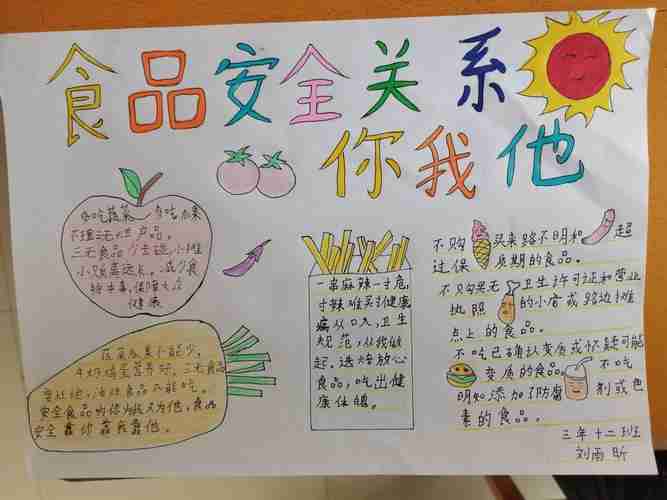 食品安全关系
你我他
多吃蔬菜 多吃水果
不理三无产品。
三无食品少去选小摊
小贩需远
健康
蔬菜瓜果不能少,
牛奶鸡蛋营养好,三无食品
变他,油炸食品不能吃,
安全食品为你为我为他,食品
安全靠你靠我靠他。
一串麻辣一寸危,
寸辣难买到健康
病从口入,卫生
规范,从我做
起。选择放心
食品,吃出健
康体魄。
不购买来路不明和超
过保质期的食品。
不购买无卫生许可证和营业
执照的小店或路边摊
点上的食品。
不吃已确认变质或怀疑可能
变质的食品。不吃
明知添加了防腐剂或色
素的食品。
三年十二班
刘雨昕